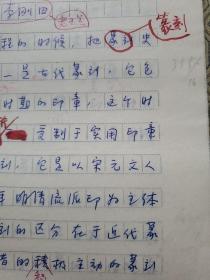 李刚田
篆刻
程的时候，把篆刻史
一是古代篆刻，它包
时期的印章，这个时
受制于实用印章
刻，它是以宋元文人
明清流派印为主体
刻的区分在于近代篆
者的积极主动的篆刻